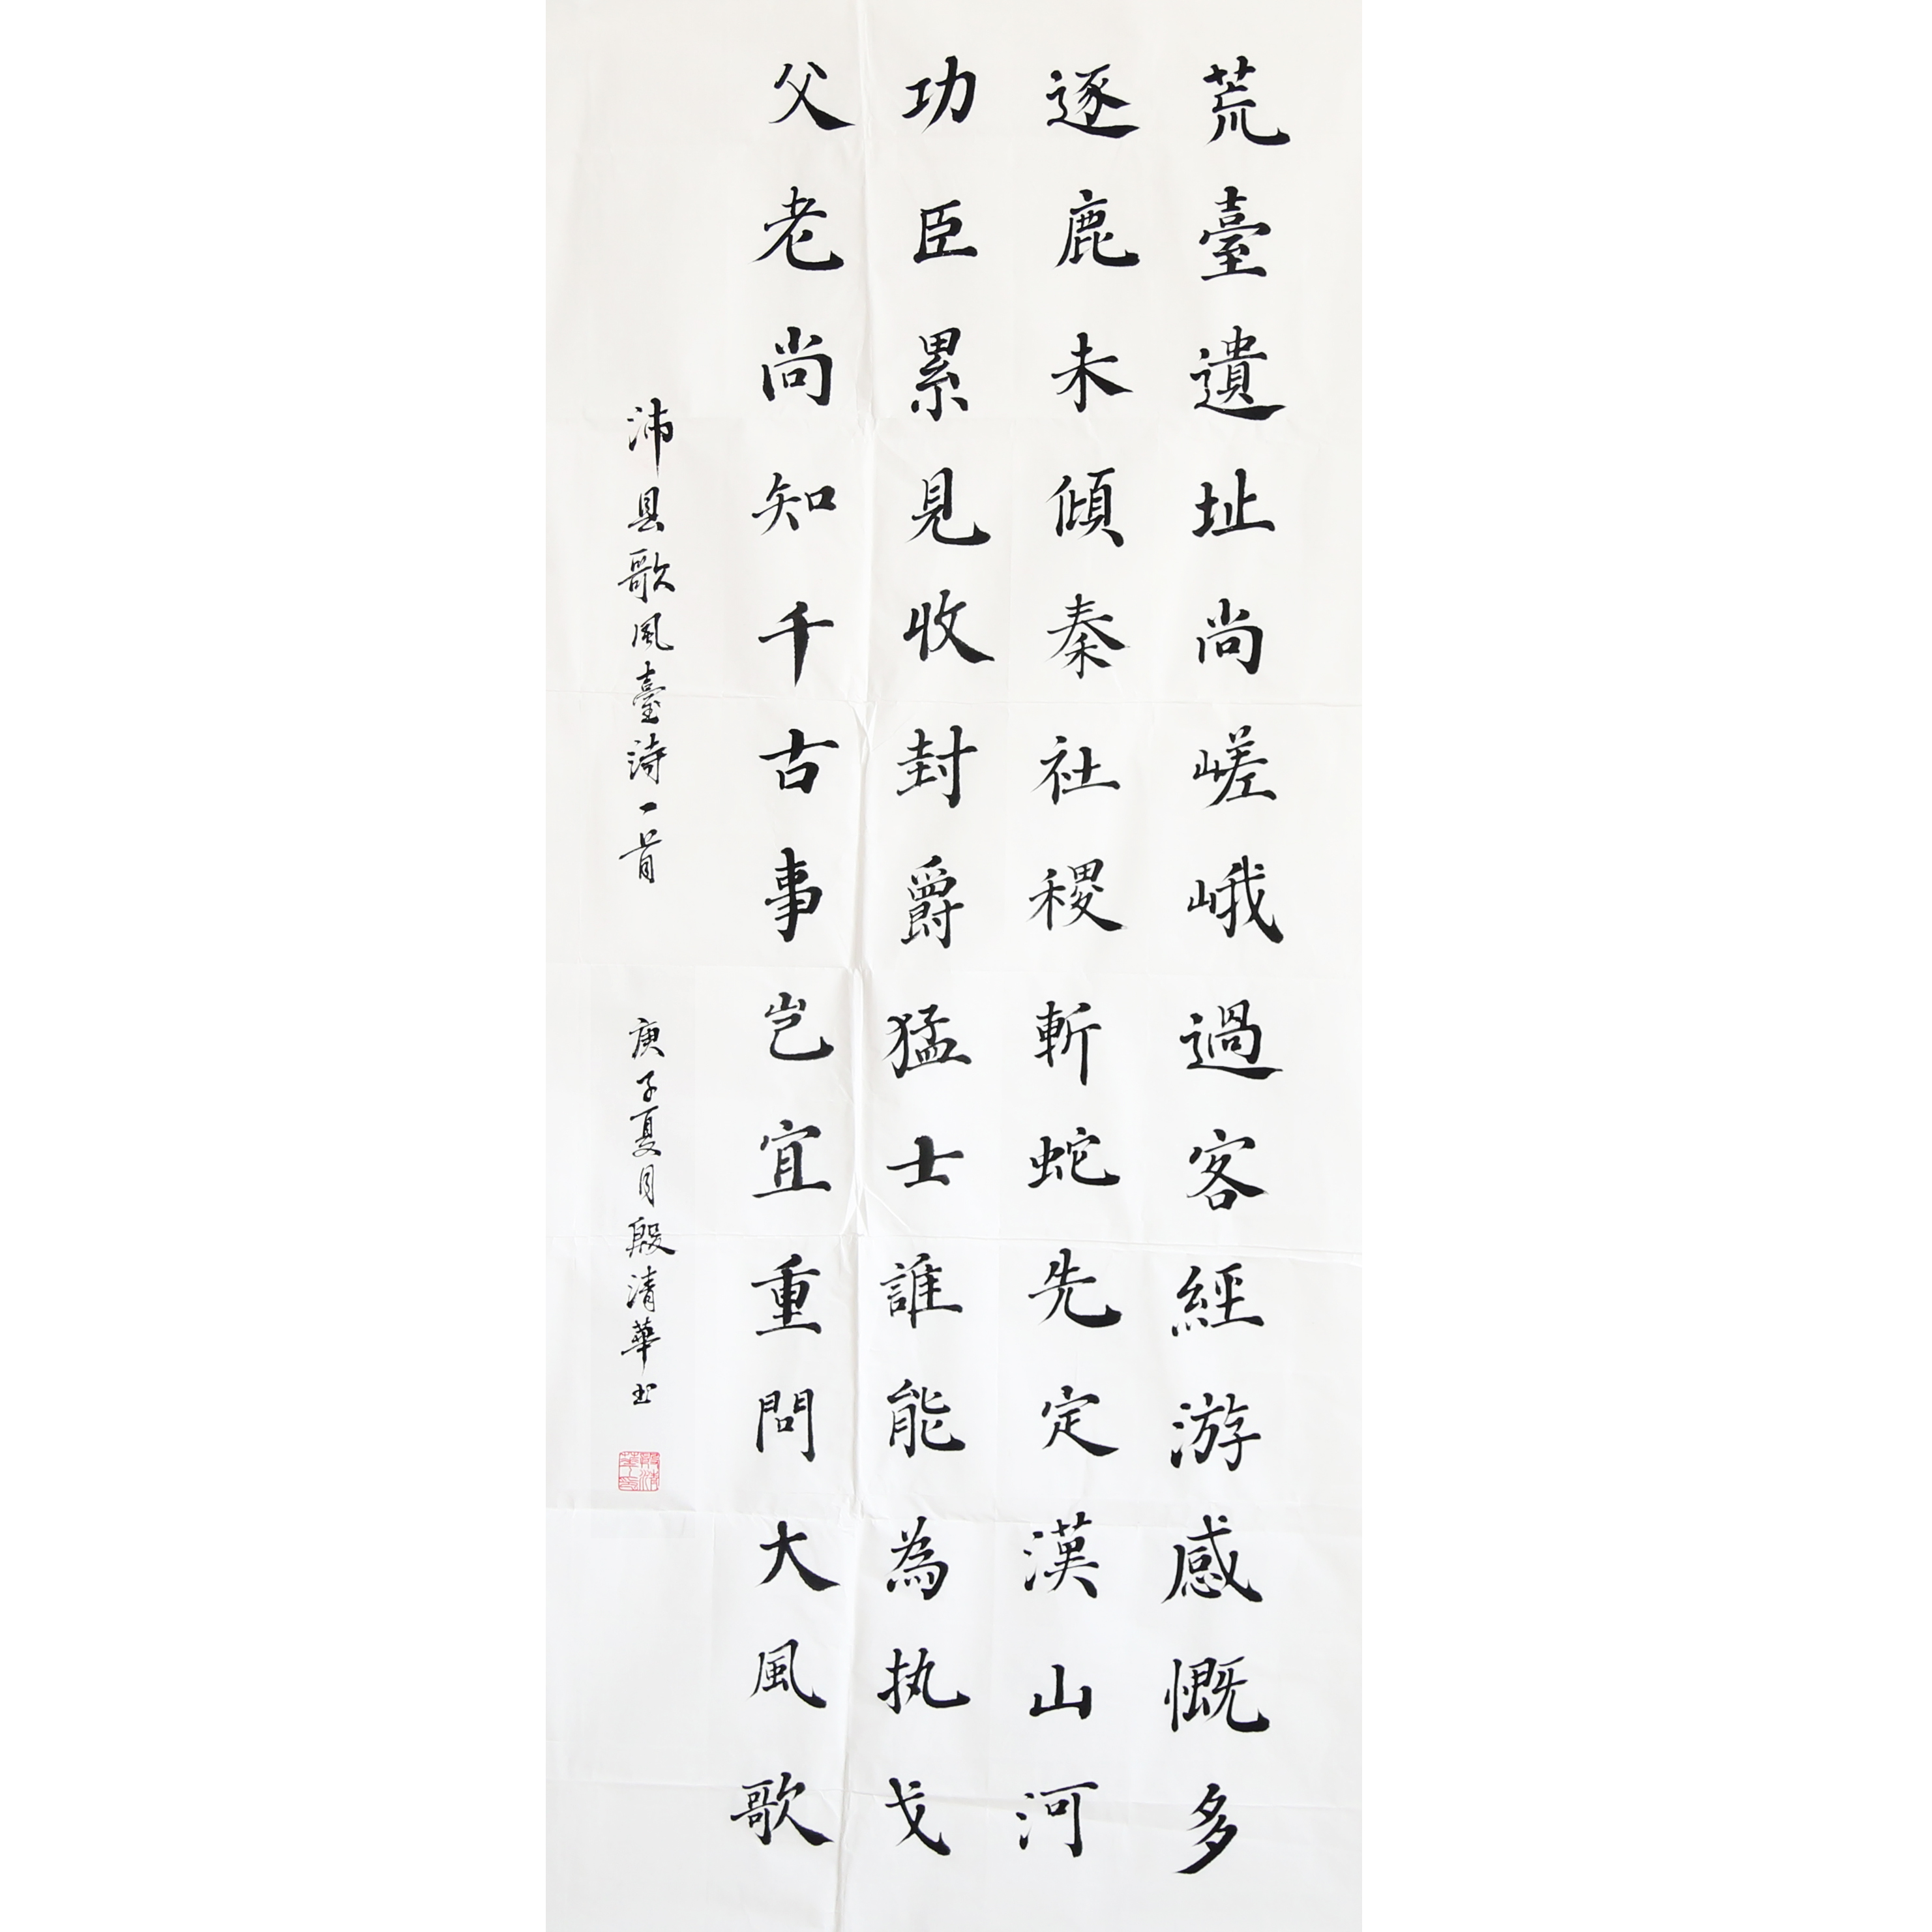 荒臺遺址尚嵯峨過客經游感慨多
逐鹿未傾秦社稷斬蛇先定漢山河
功臣累見收封爵猛士誰能為执戈
父老尚知千古事岂宜重問大風歌
沛县歌風臺詩一首 庚子夏月殷清華书
殷清華印